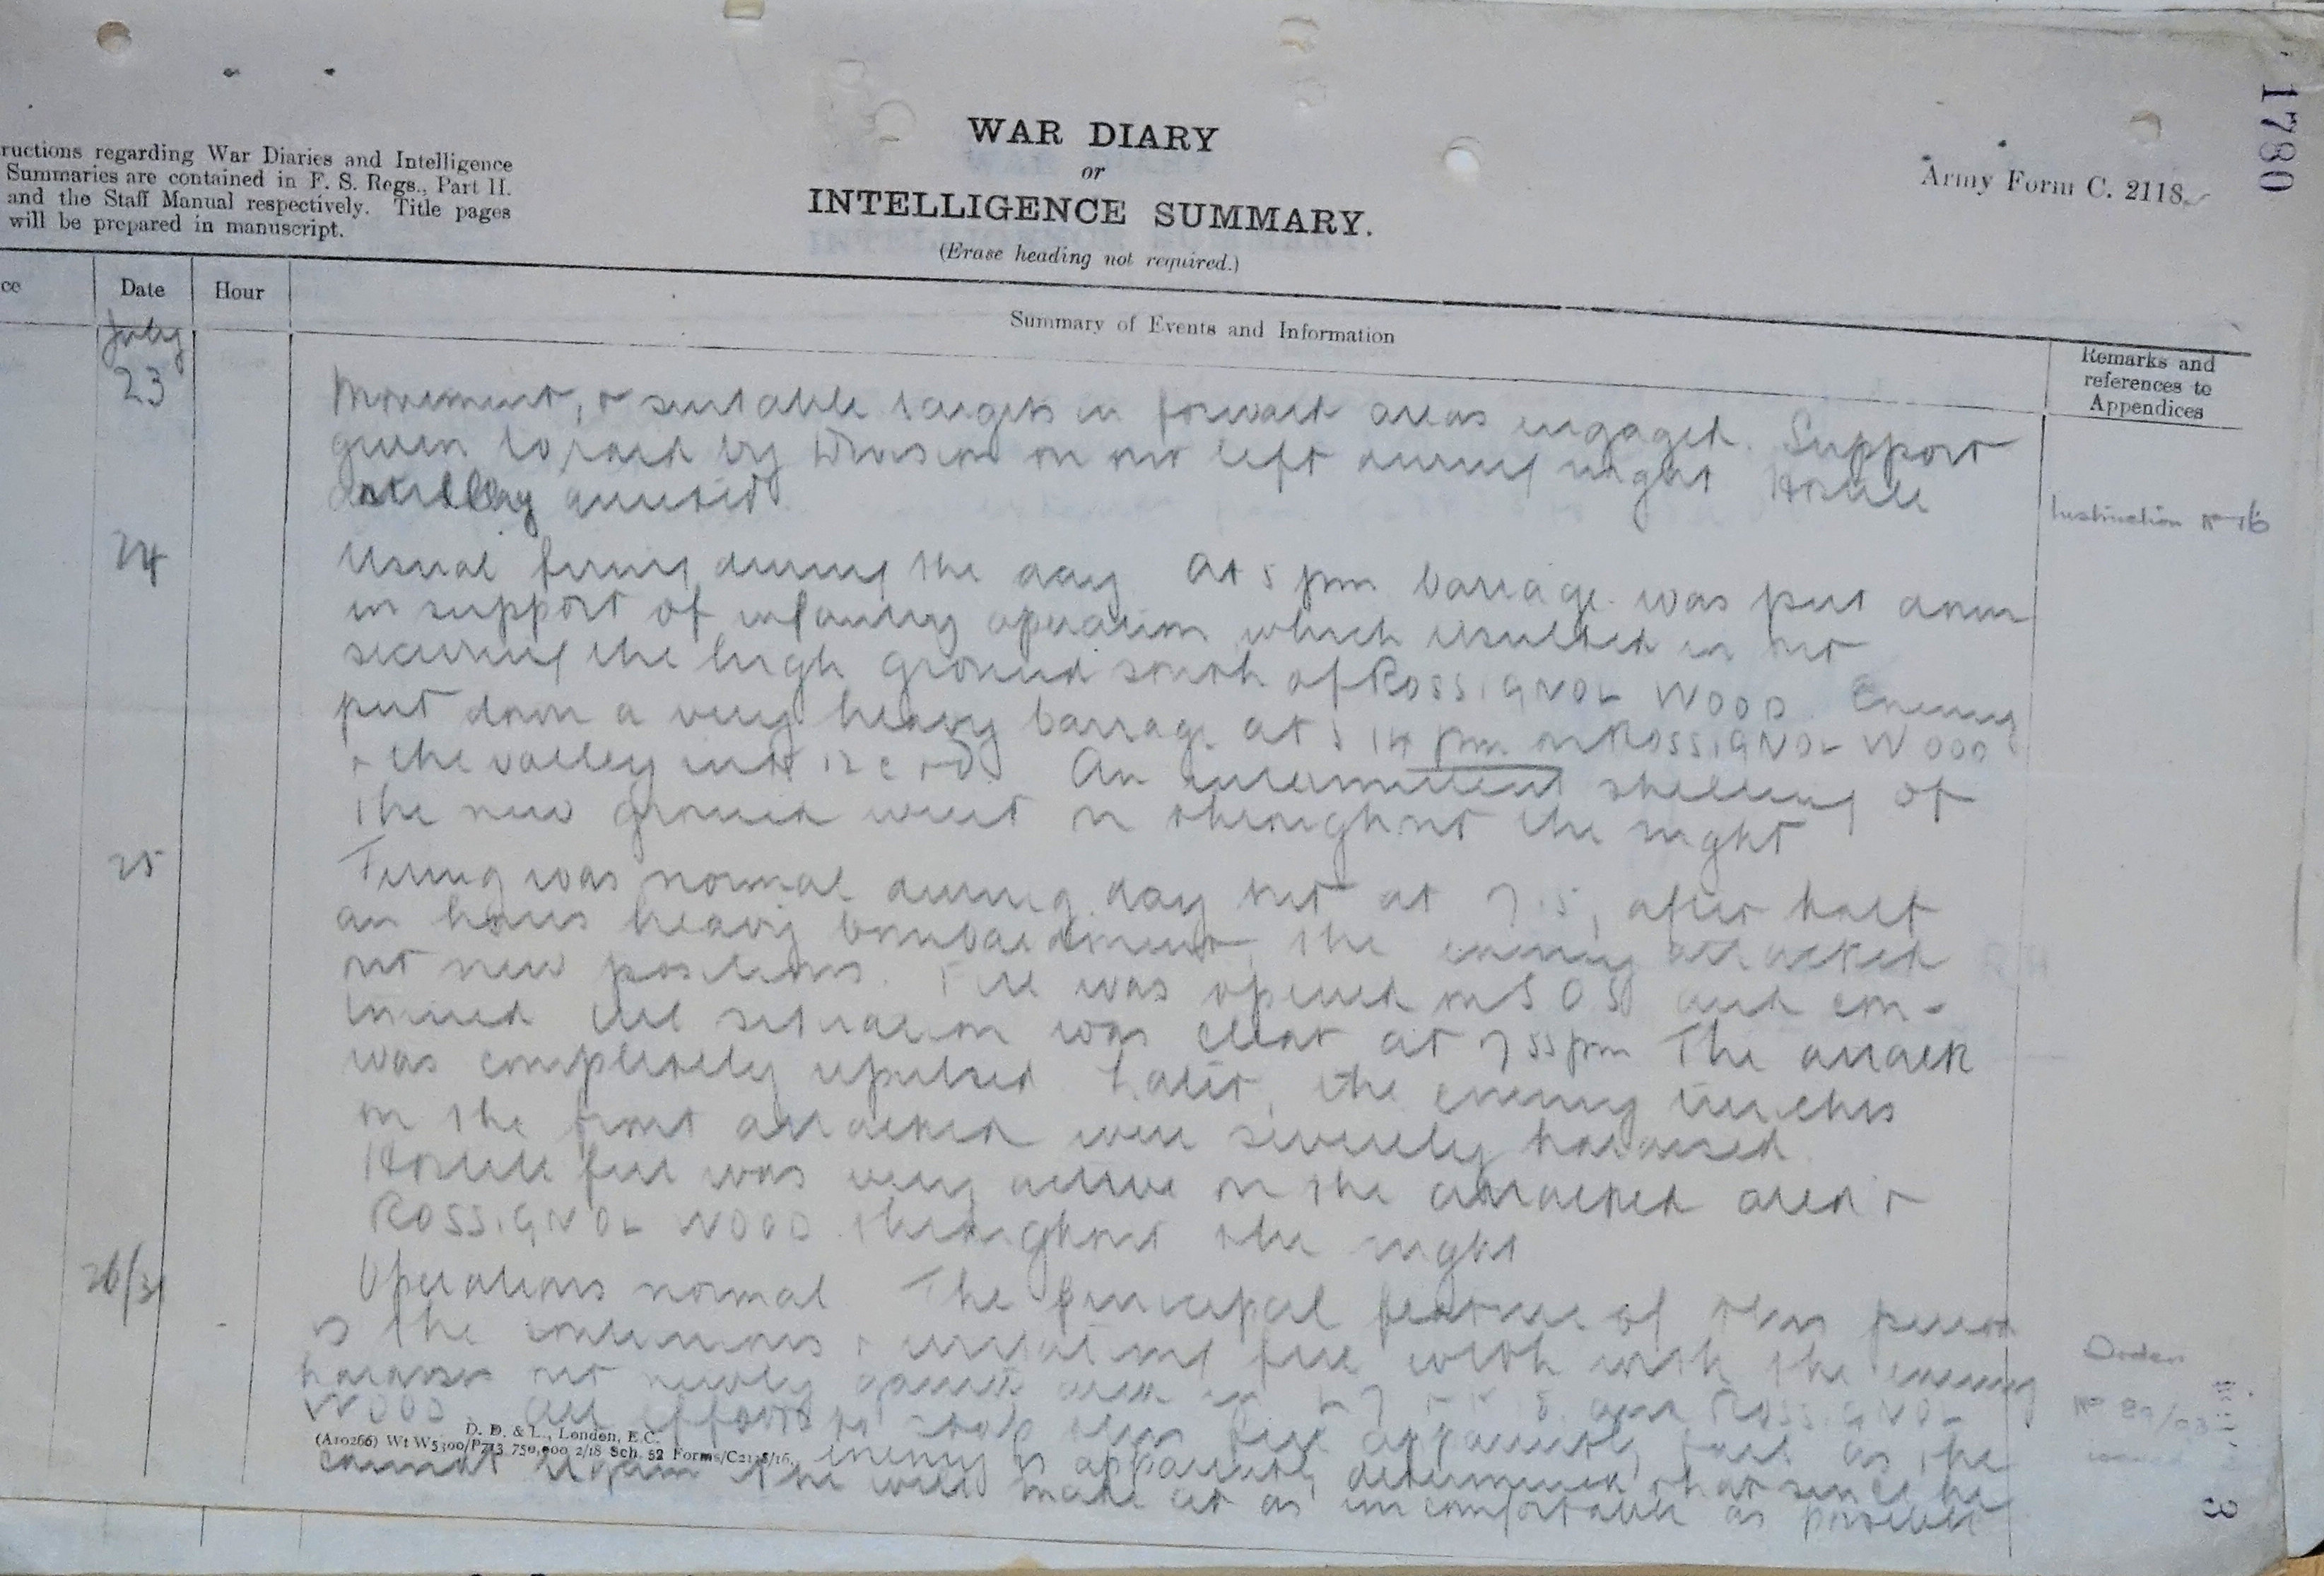 1780
WAR DIARY
or
INTELLIGENCE SUMMARY.
(Erase heading not required.)
Army Form C. 2118.
ructions regarding War Diaries and Intelligence
Summaries are contained in F. S. Regs., Part II.
and the Staff Manual respectively. Title pages
will be prepared in manuscript.
ce Date Hour
Summary of Events and Information
Remarks and
references to
Appendices
July
23
Movement, & suitable targets in forward areas engaged. Support
given to raid by Division on our left during night Hostile
artillery quieter
Instruction No 16
24
Usual firing during the day At 5 pm barrage was put down
in support of infantry operation which resulted in our
securing the high ground south of ROSSIGNOL WOOD. Enemy
put down a very heavy barrage at 5 14 pm on ROSSIGNOL WOOD
& the valley in 12 c & d. An intermittent shelling of
the new ground went on throughout the night
25
Firing was normal during day but at 7.15, after half
an hours heavy bombardment, the enemy attacked
our new positions. Fire was opened on S O S and con-
tinued till situation was clear at 7 55 pm The attack
was completely repulsed. Later, the enemy trenches
on the front attacked were severely harassed.
Hostile fire was very active on the attacked area &
ROSSIGNOL WOOD throughout the night
26/31
Operations normal The principal feature of this period
is the continuous & fire with with the enemy
harasses our newly gained area in and ROSSIGNOL
WOOD. All efforts to stop this fire apparently fail as the
enemy is apparently determined that since he
cannot regain it he will make it as uncomfortable as possible
Order
No 89/93
issued
D. D. & L., London, E.C.
(A10266) Wt W5300/P713 750,000 2/18 Sch. 52 Forms/C2118/16.
3